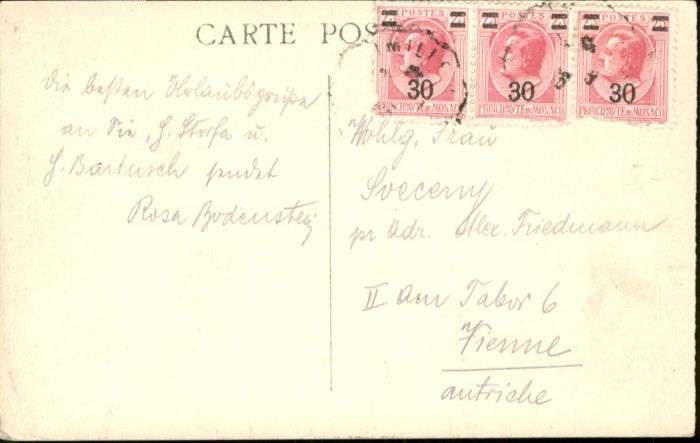 CARTE POS
POSTES POSTES POSTES
30 30 30
PRINCIPAUTÉ DE MONACO PRINCIPAUTÉ DE MONACO PRINCIPAUTÉ DE MONACO
die besten Urlaubsgrüße
an Sie, H. Storfa u.
H. Bartusch sendet
Rosa Bodenstein
Wohlg. Frau
Svecerny
pr Adr. Alex. Friedmann
II Am Tabor 6
Vienne
autriche